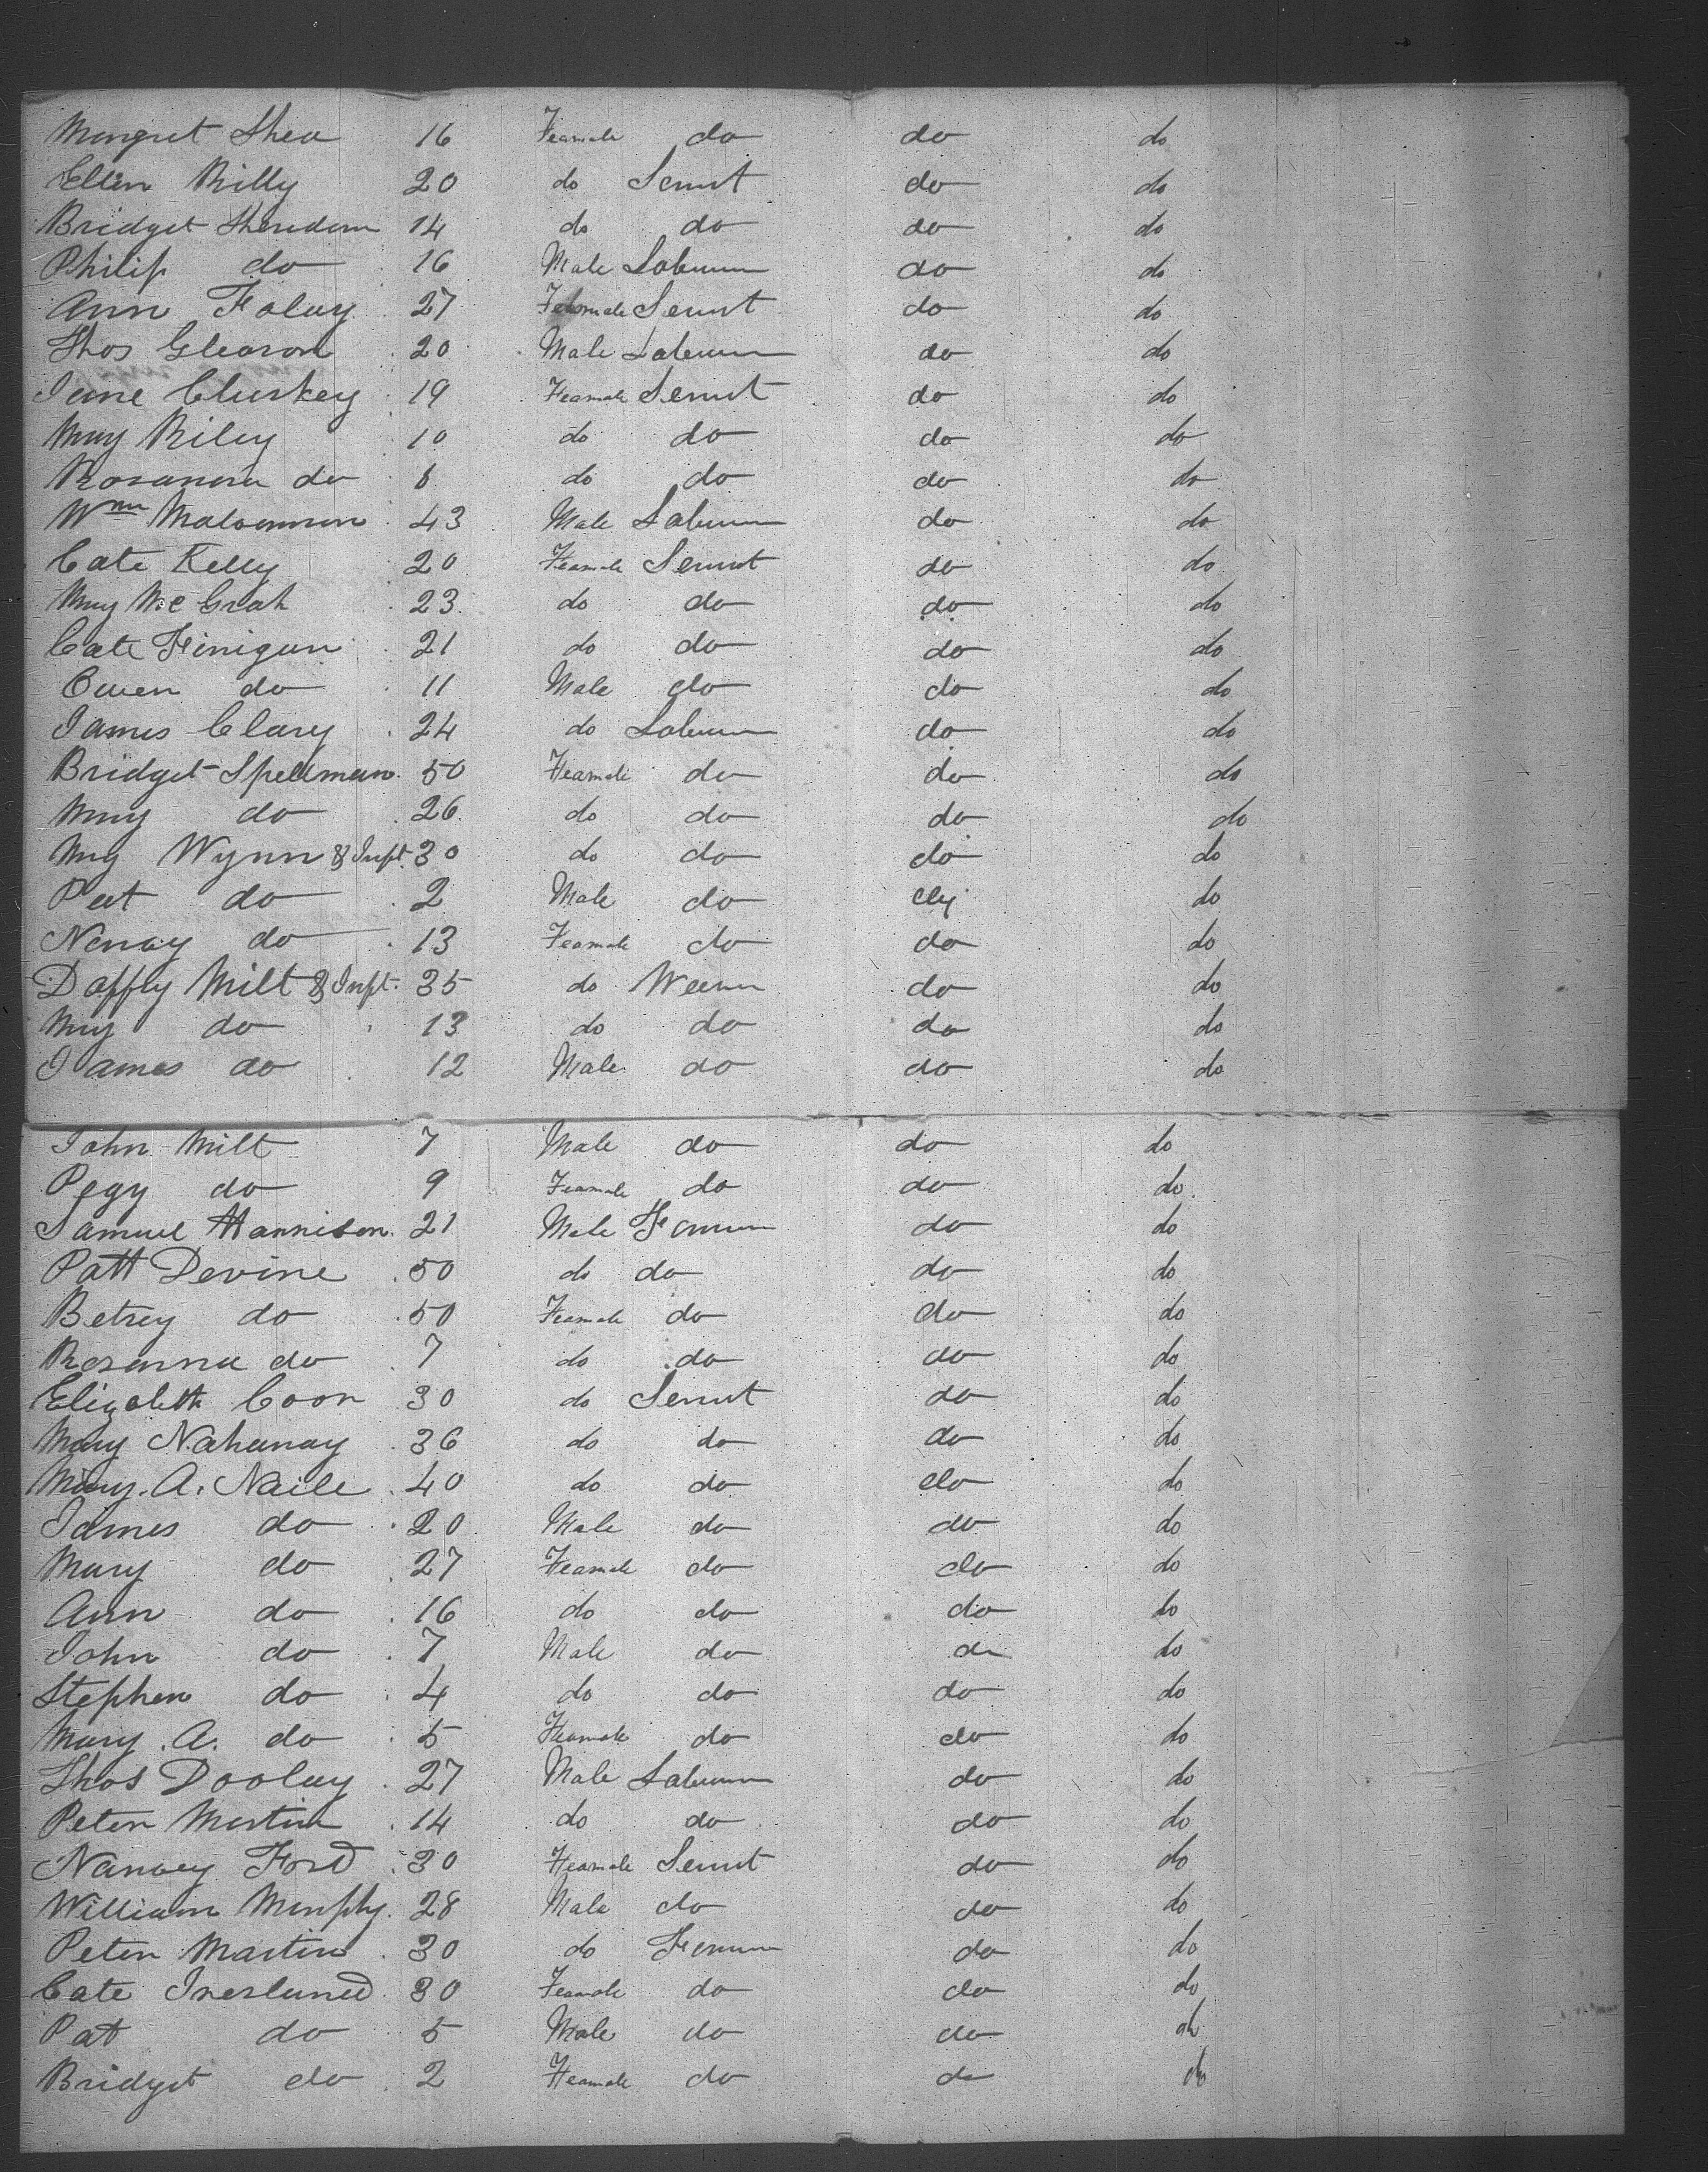 Margret Shea 16 Feamale do do do
Ellin Rilly 20 do Servnt do do
Bridget Sheredan 14 do do do do
Philip do 16 Male Laburer do do
Ann Foley 27 Feamale Servnt do do
Thos Gleason 20 Male Laburer do do
Jane Cluskey 19 Feamale Servnt do do
Mary Riley 10 do do do do
Rosanna do 8 do do do do
Wm 43 Male Laburer do do
Cate Kelly 20 Feamale Servnt do do
Mary McGrah 23 do do do do
Cate Finigan 21 do do do do
Owen do 11 Male do do do
James Clary 24 do Laburer do do
Bridget Spellman 50 Feamale do do do
Mary do 26 do do do do
Mry Wynn & Inft. 30 do do do do
Pat do 2 Male do do do
Nancy do 13 Feamale do do do
Daffly Milt & Inft. 35 do do do
Mry do 13 do do do do
James do 12 Male do do do
John Milt 7 Male do do do
Pegy do 9 Feamale do do do
Samuel Harrison 21 Male Farmer do do
Patt Devine 50 do do do do
Betsey do 50 Feamale do do do
Rosanna do 7 do do do do
Elizabeth Coon 30 do Servnt do do
Mary Nahanay 36 do do do do
Mary. A. Naile 40 do do do do
James do 20 Male do do do
Mary do 27 Feamale do do do
Ann do 16 do do do do
John do 7 Male do do do
Stephen do 4 do do do do
Mary. A. do 5 Feamale do do do
Thos Dooley 27 Male Laburer do do
Peter Martin 14 do do do do
Nancey Ford 30 Feamale Servnt do do
William Murphy 28 Male do do do
Peter Martin 30 do Farmer do do
Cate 30 Feamale do do do
Pat do 5 Male do do do
Bridget do 2 Feamale do do do